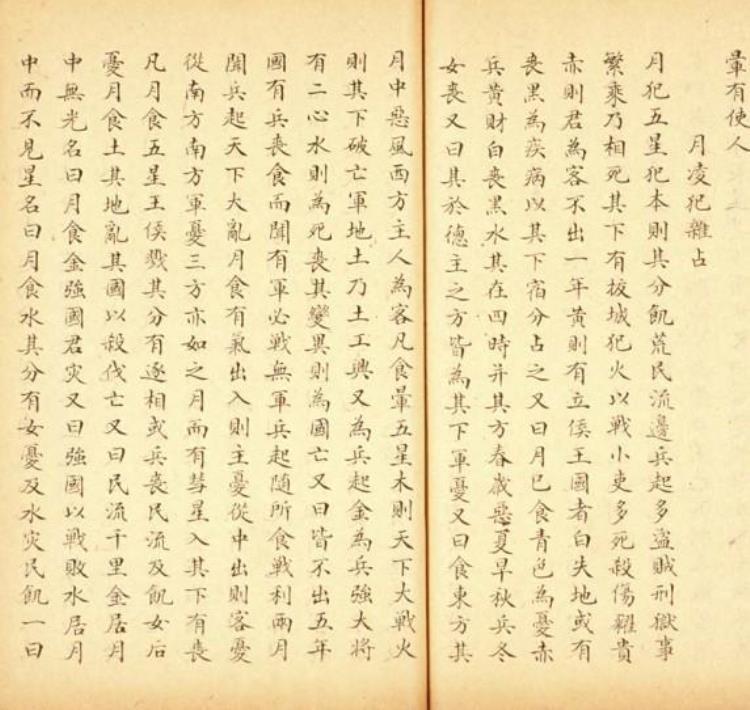 暈有使人
月凌犯雜占
月犯五星犯本則其分飢荒民流邊兵起多盜賊刑獄事
繁乘乃相死其下有拔城犯火以戰小吏多死殺傷糴貴
赤則君為客不出一年黃則有立侯王國者白失地或有
喪黑為疾病以其下宿分占之又曰月已食青色為憂赤
兵黃財白喪黑水其在四時并其方春歲惡夏旱秋兵冬
女喪又曰其於德主之方皆為其下軍憂又曰食東方其
月中惡風西方主人為客凡食暈五星木則天下大戰火
則其下破亡軍地土乃土工興又為兵起金為兵強大將
有二心水則為死喪其變異則為國亡又曰皆不出五年
國有兵喪食而鬪有軍必戰無軍兵起隨所食戰利兩月
鬪兵起天下大亂月食有氣出入則主憂從中出則客憂
從南方南方軍憂三方亦如之月而有彗星入其下有喪
凡月食五星王侯戮其分有逐相或兵喪民流及飢女后
憂月食土其地亂其國以殺伐亡又曰民流千里金居月
中無光名曰月食金強國君災又曰強國以戰敗水居月
中而不見星名曰月食水其分有女憂及水災民飢一曰